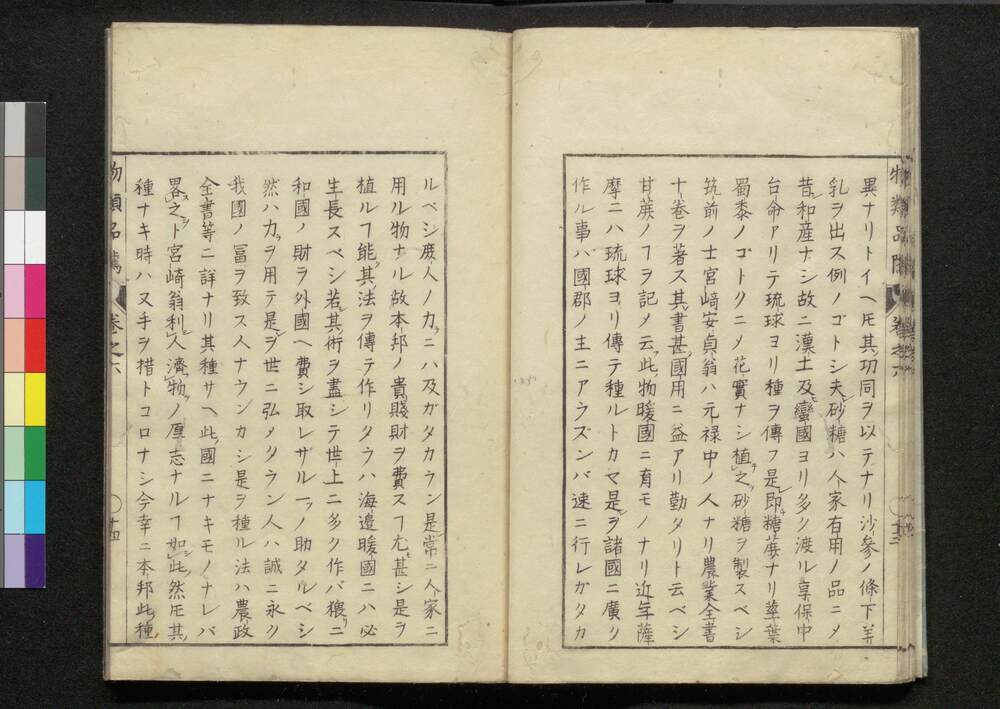 異ナリトイヘ𪜈其功同ヲ以テナリ沙參ノ條下并
乳ヲ出ス例ノゴトシ夫砂糖ハ人家有用ノ品ニメ
昔和産ナシ故ニ漢土及蠻國ヨリ多ク渡ル享保中
台命アリテ琉球ヨリ種ヲ傳フ是即糖蔗ナリ莖葉
蜀黍ノゴトクニメ花實ナシ植之砂糖ヲ製スベシ
筑前ノ士宮﨑安貞翁ハ元禄中ノ人ナリ農業全書
十巻ヲ著ス其書甚國用ニ益アリ勤タリト云ベシ
甘蔗ノヿヲ記メ云此物暖國ニ育モノナリ近年薩
摩ニハ琉球ヨリ傳テ種ルトカマ是ヲ諸國ニ廣ク
作ル事ハ國郡ノ主ニアラズンバ速ニ行レガタカ
物類品隲 巻之六 十三
ルベシ庶人ノ力ニハ及ガタカラン是常ニ人家ニ
用ル物ナル故本邦ノ貴賤財ヲ費スヿ尤甚シ是ヲ
植ルヿ能其法ヲ傳テ作リタラハ海邉暖國ニハ必
生長スベシ若其術ヲ盡シテ世上ニ多ク作バ穣ニ
和國ノ財ヲ外國ヘ費シ取レザル一ツノ助タルベシ
然ハ力ヲ用テ是ヲ世ニ弘メタラン人ハ誠ニ永ク
我國ノ冨ヲ致ス人ナランカシ是ヲ種ル法ハ農政
全書等ニ詳ナリ其種サヘ此國ニナキモノナレバ
畧之ト宮﨑翁利人濟物ノ厚志ナルヿ如此然𪜈其
種ナキ時ハ又手ヲ措トコロナシ今幸ニ本邦此種
物類品隲 巻之六 十四